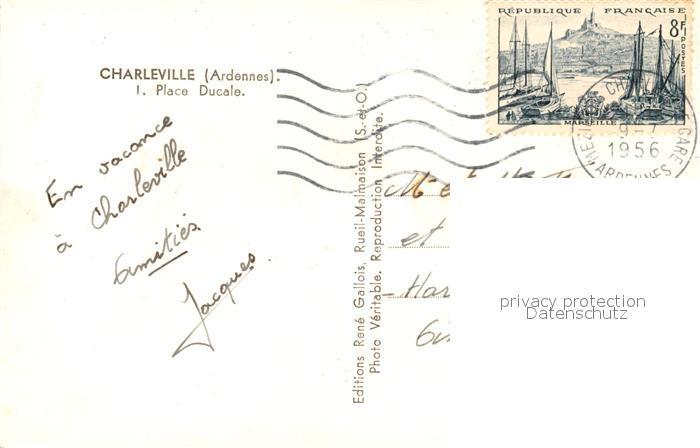 CHARLEVILLE (Ardennes).
1. Place Ducale.
En vacance
à Charleville
Amitiés
Jacques.
Editions René Gallois, Rueil-Malmaison (S.-et-O.)
Photo Véritable. Reproduction Interdite.
RÉPUBLIQUE FRANÇAISE
8F
POSTES
MARSEILLE
GARE
9-7
1956
ARDENNES
et
privacy protection
Datenschutz